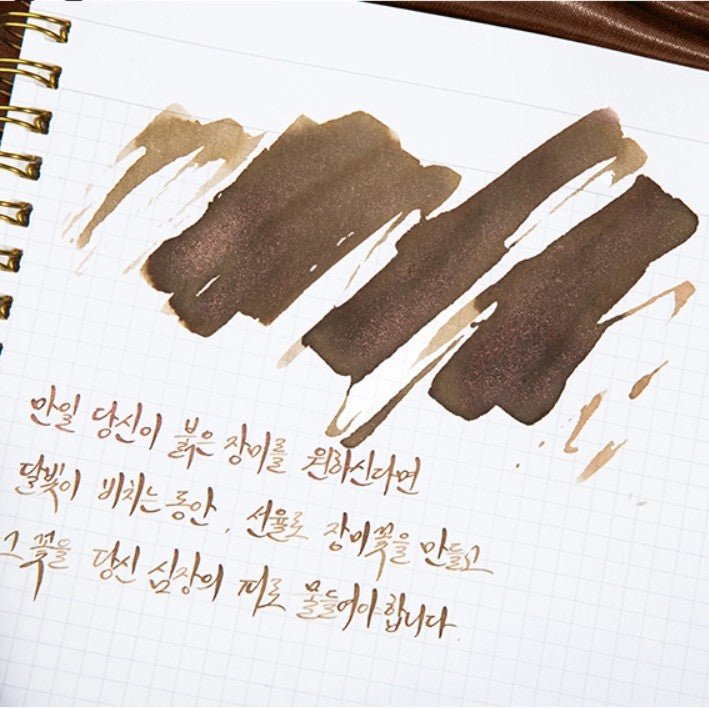 만일 당신이 붉은 장미를 원하신다면
달빛이 비치는 동안, 선율로 장미꽃을 만들고
그 꽃을 당신 심장의 피로 물들어야 합니다.